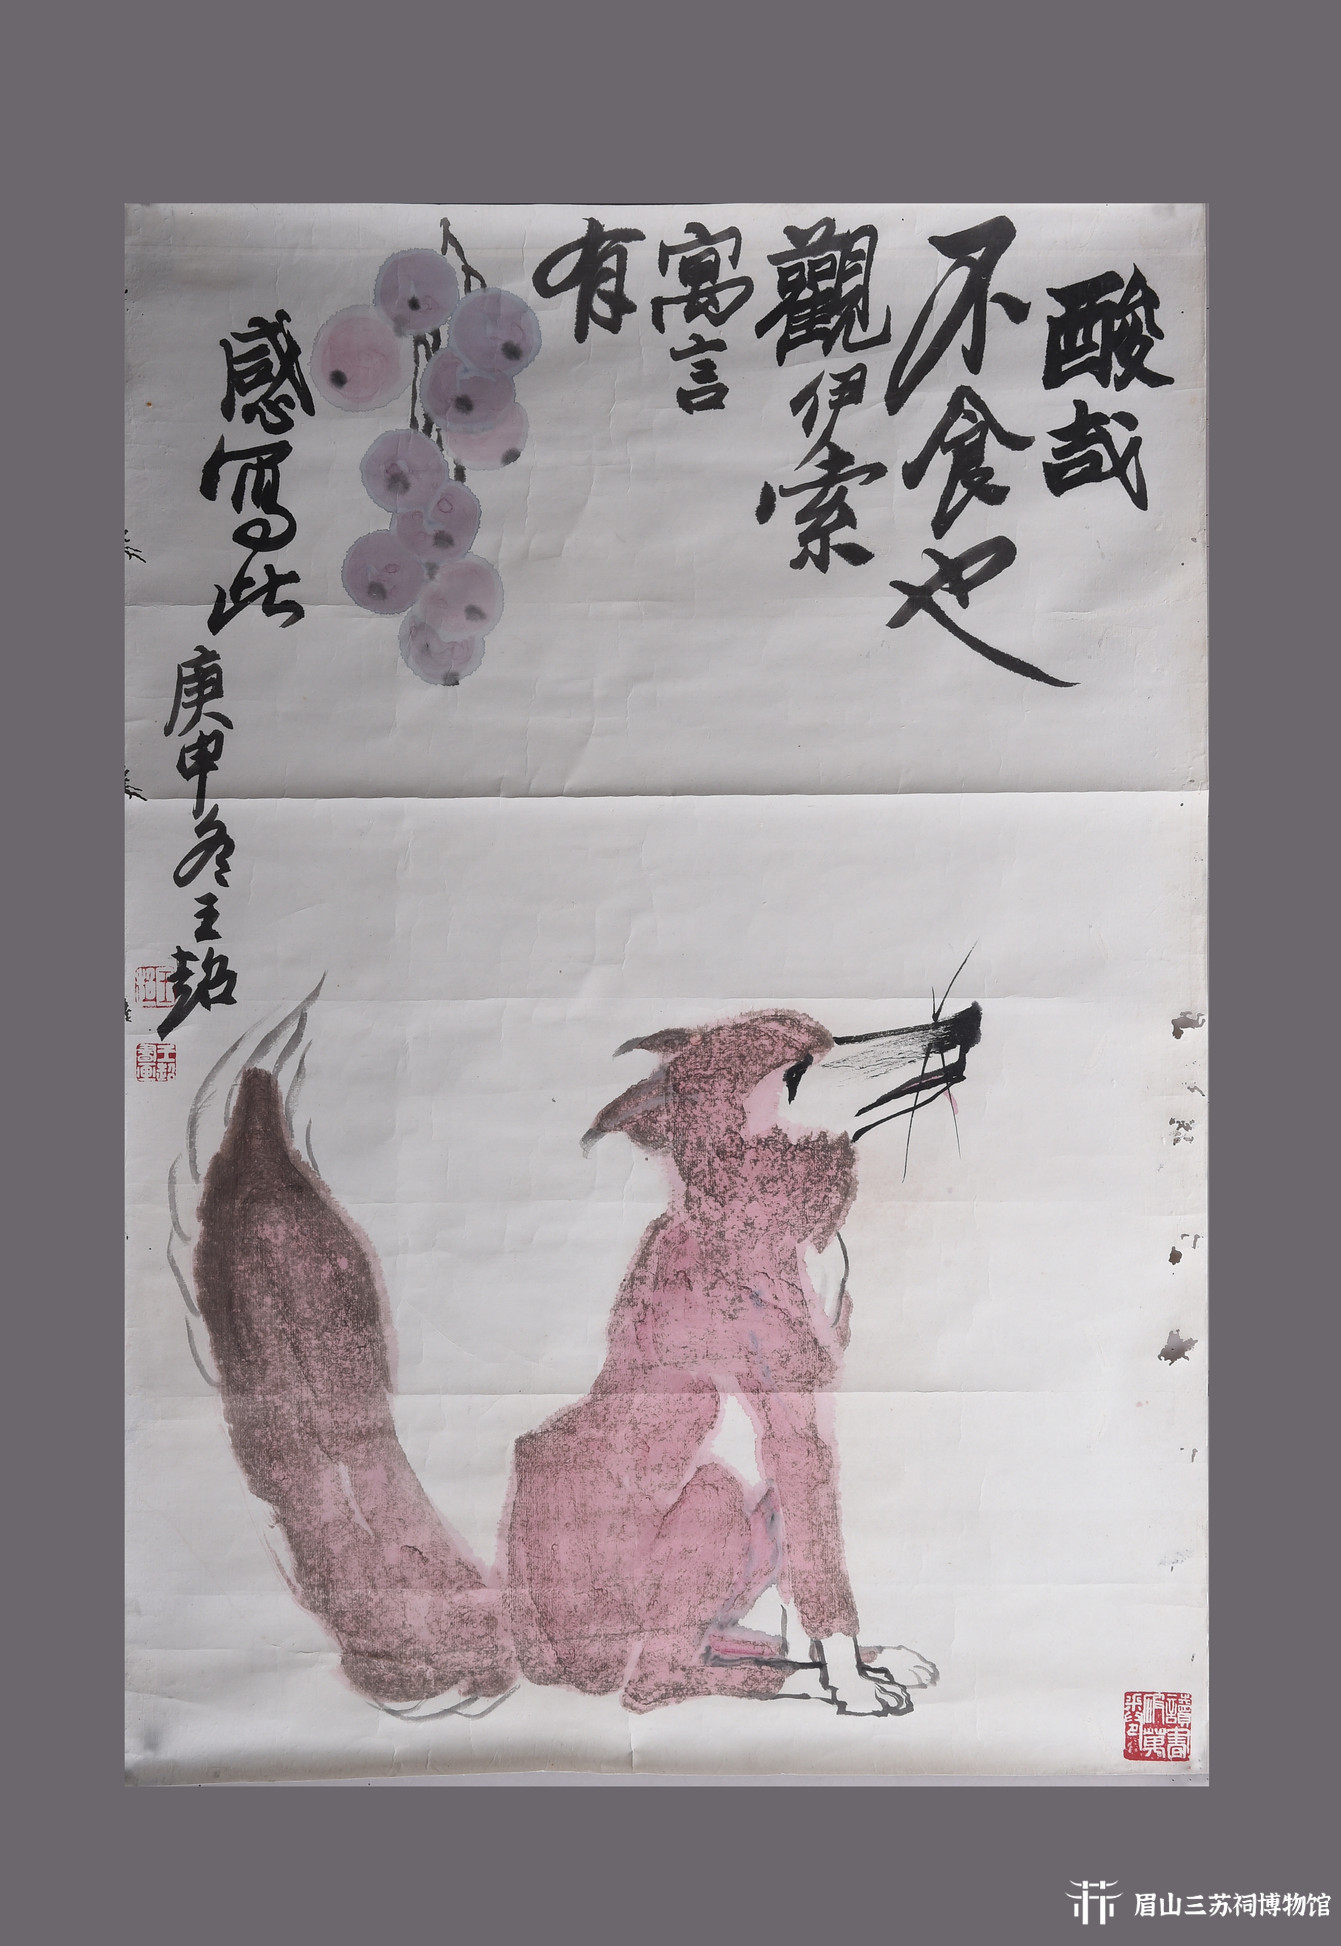 酸哉
不食也
觀伊索
寓言
有
感寫此
庚申冬王
讀書破萬
眉山三苏祠博物馆